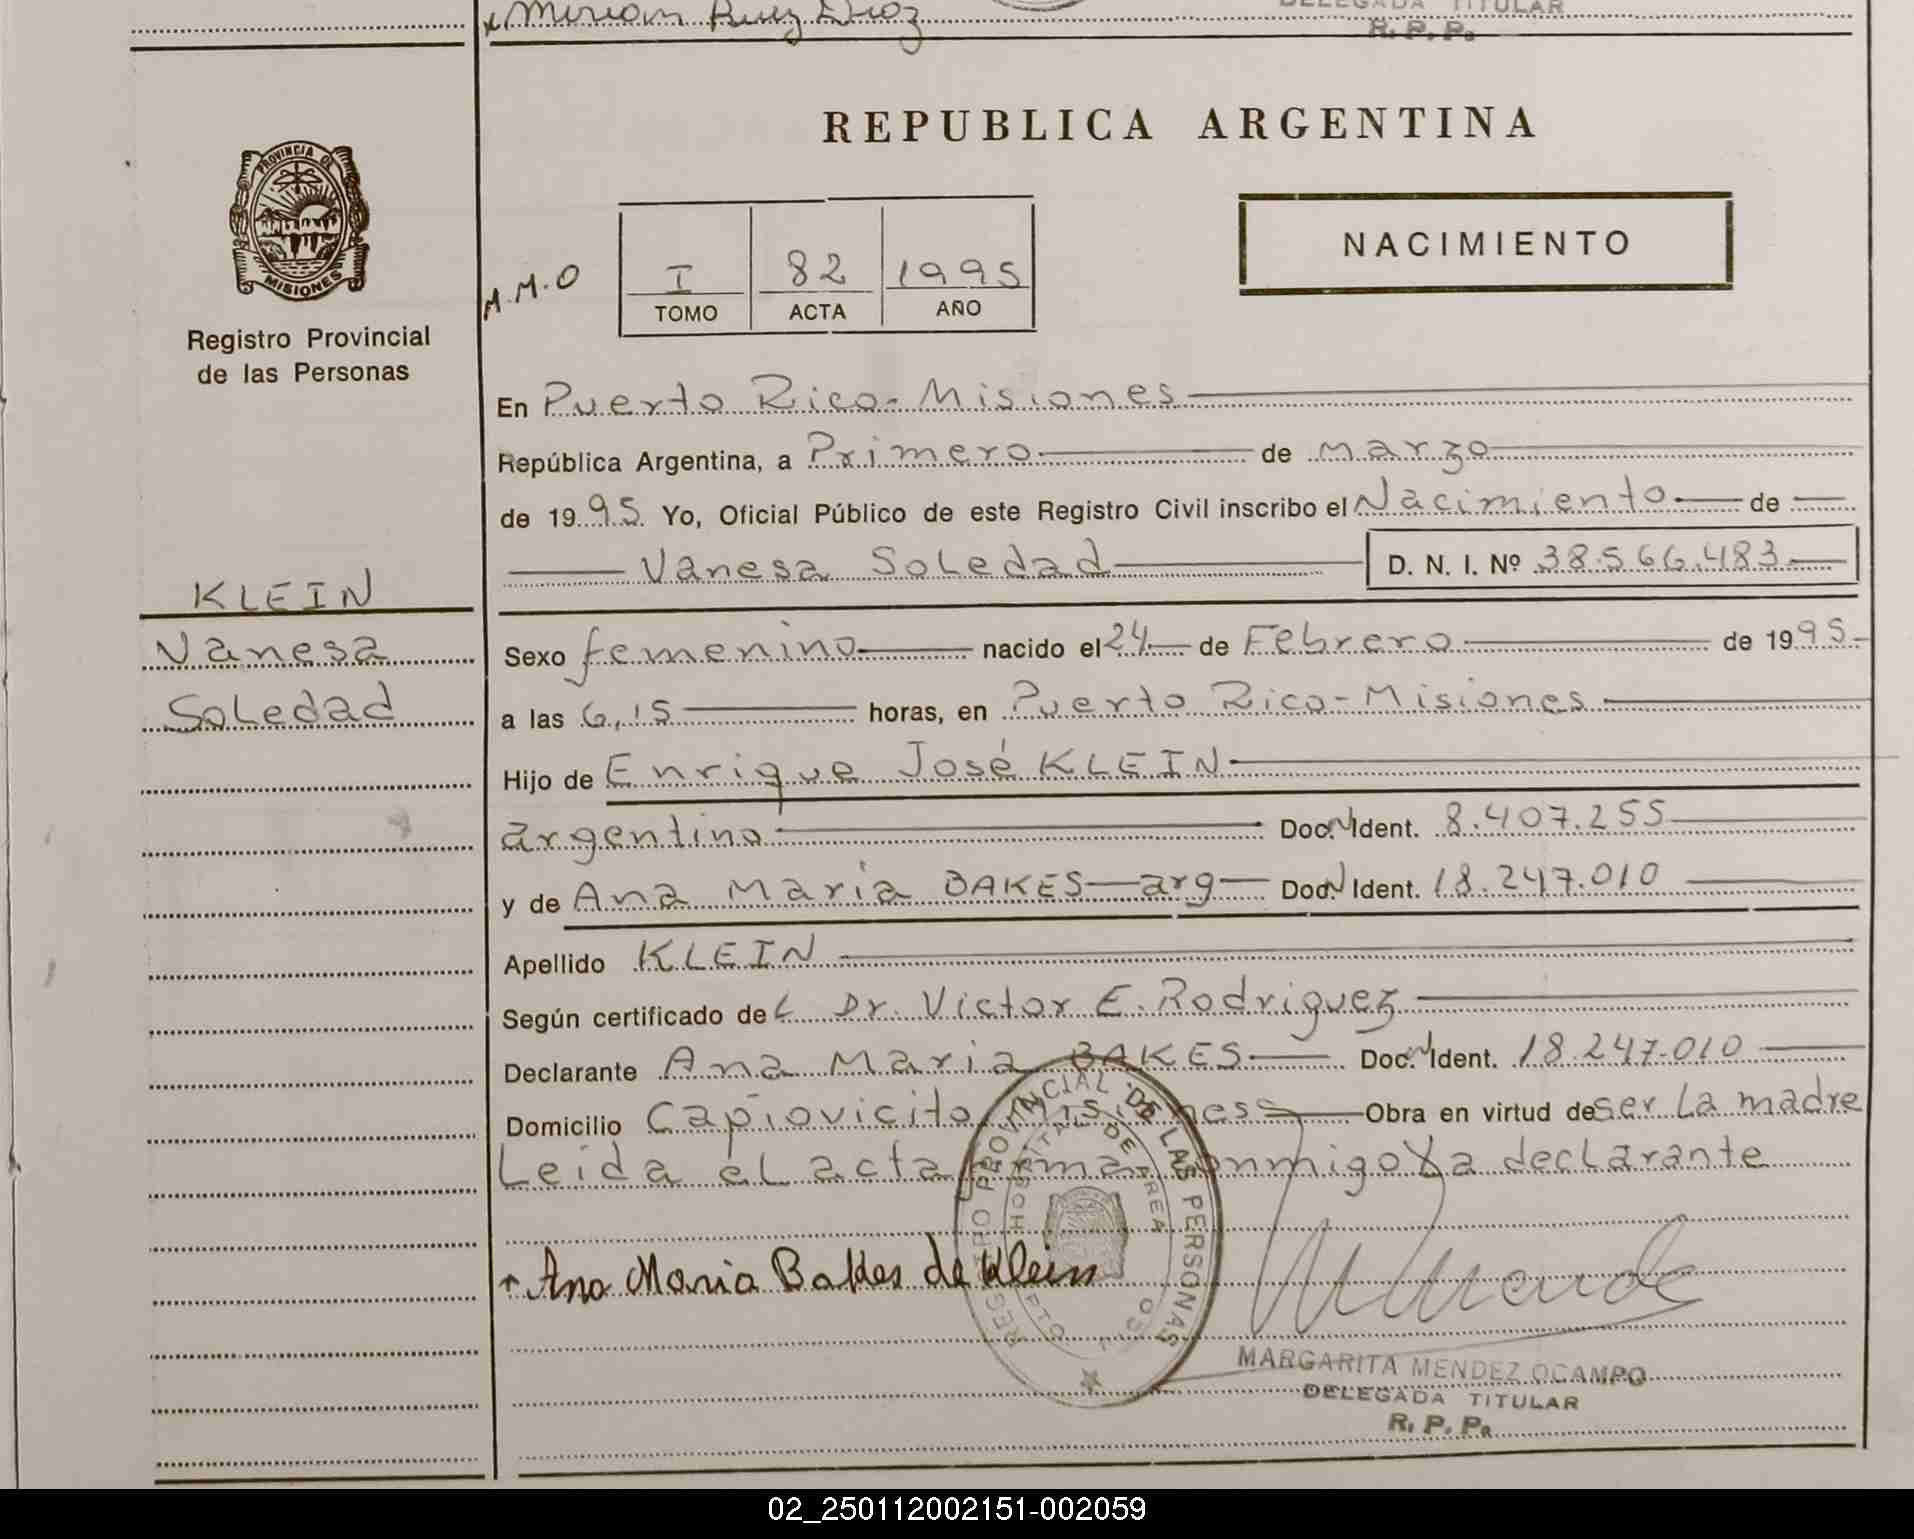 x Mirian Ruiz Diaz
DELEGADA TITULAR
R. P. P.
PROVINCIA DE
MISIONES
Registro Provincial
de las Personas
REPUBLICA ARGENTINA
M.M.O
I 82 1995
TOMO ACTA AÑO
NACIMIENTO
En Puerto Rico - Misiones
República Argentina, a Primero de marzo
de 1995 Yo, Oficial Público de este Registro Civil inscribo el Nacimiento de
Vanesa Soledad D. N. I. Nº 38.566.483
KLEIN
Vanesa
Soledad
Sexo femenino nacido el 24 de Febrero de 1995
a las 6,15 horas, en Puerto Rico - Misiones
Hijo de Enrique José KLEIN
argentino Doc. N Ident. 8.407.255
y de Ana Maria BAKES arg Doc. N Ident. 18.247.010
Apellido KLEIN
Según certificado del Dr. Victor E. Rodriguez
Declarante Ana Maria BAKES Doc. N Ident. 18.247.010
Domicilio Capiovicito Misiones Obra en virtud de ser la madre
Leida el acta firma conmigo la declarante
REGISTRO PROVINCIAL DE LAS PERSONAS
HOSPITAL DE AREA
Ana Maria Bakes de Klein
MARGARITA MENDEZ OCAMPO
DELEGADA TITULAR
R. P. P.
02_250112002151-002059